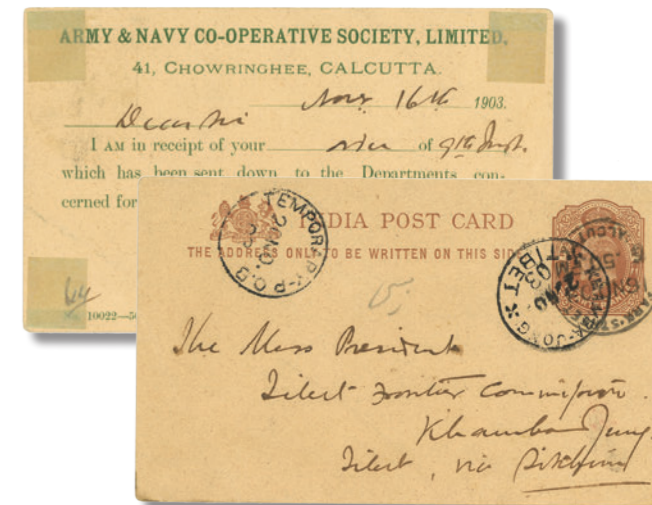 ARMY & NAVY CO-OPERATIVE SOCIETY, LIMITED,
41, CHOWRINGHEE, CALCUTTA.
Nov. 16th 1903.
Dear Sir
I AM in receipt of your order of 9th Inst.
which has been sent down to the Departments con-
cerned for
64
10022—50
TEMPORARY-P.O.B
INDIA POST CARD
THE ADDRESS ONLY TO BE WRITTEN ON THIS SIDE
KHAMBA-JONG TIBET
03
The Mess President
Tibet Frontier Commission.
Khamba Jung
Tibet, via Sikkim